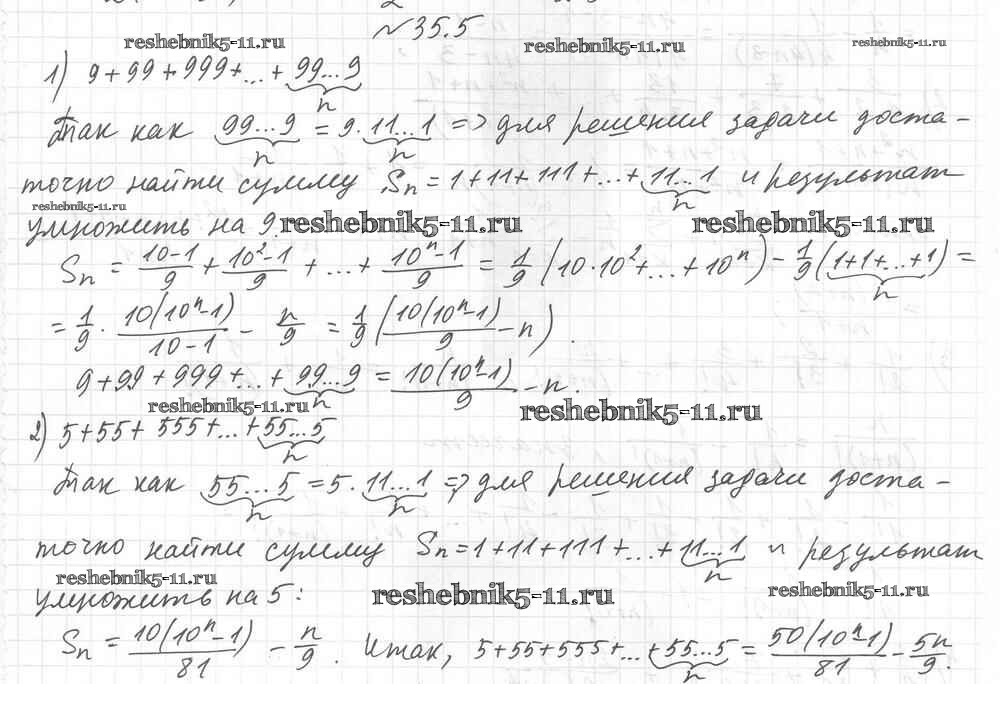 №35.5
reshebnik5-11.ru reshebnik5-11.ru reshebnik5-11.ru
1) 9+99+999+...+99...9
n
Так как 99...9 = 9·11...1 => для решения задачи доста-
n n
точно найти сумму Sn = 1+11+111+...+11...1 и результат
n
reshebnik5-11.ru
умножить на 9. reshebnik5-11.ru reshebnik5-11.ru
Sn = (10-1)/9 + (10²-1)/9 + ... + (10ⁿ-1)/9 = 1/9 (10·10²+...+10ⁿ) - 1/9 (1+1+...+1) =
n
= 1/9 · 10(10ⁿ-1)/(10-1) - n/9 = 1/9 (10(10ⁿ-1)/9 - n).
9+99+999+...+99...9 = 10(10ⁿ-1)/9 - n.
n
reshebnik5-11.ru reshebnik5-11.ru
2) 5+55+555+...+55...5
n
Так как 55...5 = 5·11...1 => для решения задачи доста-
n n
точно найти сумму Sn = 1+11+111+...+11...1 и результат
n
reshebnik5-11.ru reshebnik5-11.ru reshebnik5-11.ru
умножить на 5:
Sn = 10(10ⁿ-1)/81 - n/9. Итак, 5+55+555+...+55...5 = 50(10ⁿ-1)/81 - 5n/9.
n